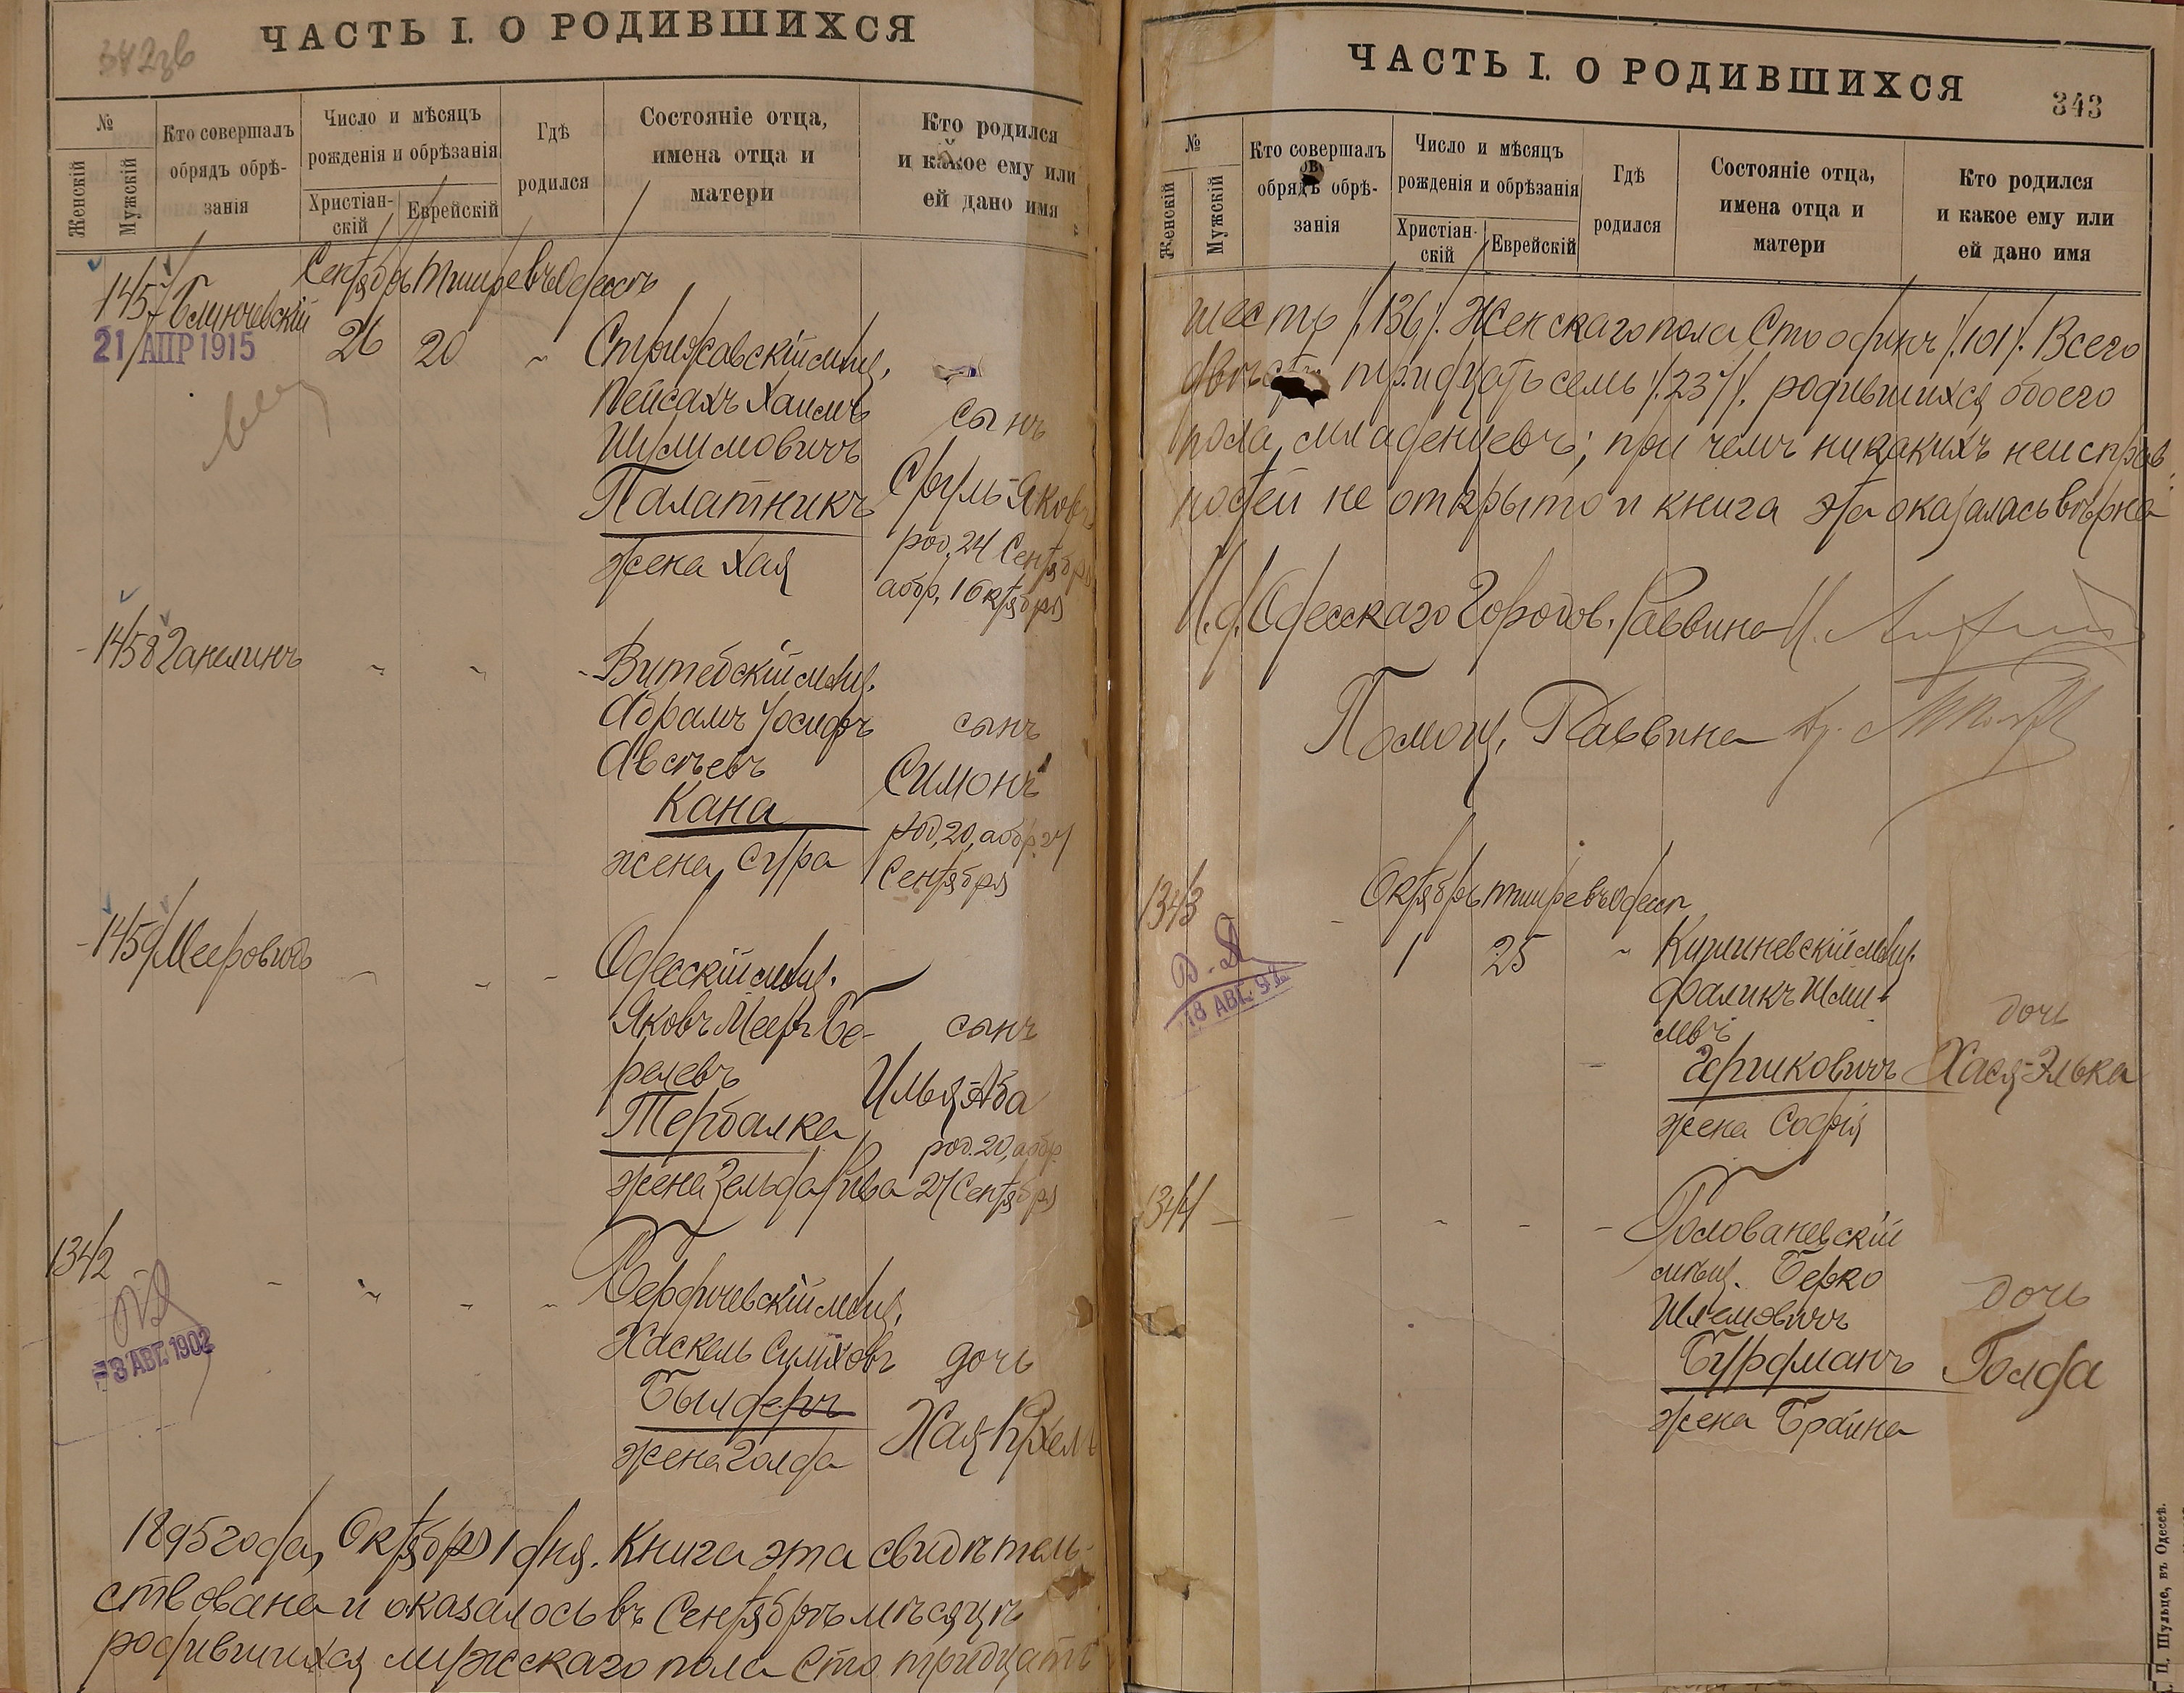 ЧАСТЬ I. О РОДИВШИХСЯ
№
Женскій
Мужскій
Кто совершалъ
обрядъ обрѣ-
занія
Число и мѣсяцъ
рожденія и обрѣзанія
Христіан-
скій
Еврейскій
Гдѣ
родился
Состояніе отца,
имена отца и
матери
Кто родился
и какое ему или
ей дано имя
Сентябрь тишре въ Одессѣ
1457
21 АПР 1915
26 20 〃
Стрижавскій мѣщ.
Пейсахъ Хаимъ
Шулимовичъ
Палатникъ
жена Хая
сынъ
Сруль-Яковъ
род. 24 Сентября
абр. 1 Октября
1458 Ганелинъ
Витебскій мѣщ.
Абрамъ Іосифъ
Авсѣевъ
Кана
жена Сура
сынъ
Симонъ
род. 20, абр. 27
Сентября
1459 Мееровичъ
Одесскій мѣщ.
Яковъ Мееръ Бе-
релевъ
Тербалка
жена Зельда Рива
сынъ
Илья-Аба
род. 20, абр.
27 Сентября
1342
3 АВГ. 1902
Бердичевскій мѣщ.
Хаскель Симховъ
Былдеръ
жена Голда
дочь
Хая-Рухель
1895 года, Октября 1 дня. Книга эта свидѣтель-
ствована и оказалось въ Сентябрѣ мѣсяцѣ
родившихся мужскаго пола Сто тридцать
ЧАСТЬ I. О РОДИВШИХСЯ
343
№
Женскій
Мужскій
Кто совершалъ
обрядъ обрѣ-
занія
Число и мѣсяцъ
рожденія и обрѣзанія
Христіан-
скій
Еврейскій
Гдѣ
родился
Состояніе отца,
имена отца и
матери
Кто родился
и какое ему или
ей дано имя
шесть /.136/. Женскаго пола Сто одинъ /.101/. Всего
двѣсти тридцать семь /.237/. родившихся обоего
пола младенцевъ; при чемъ никакихъ неисправ
ностей не открыто и книга эта оказалась вѣрна
И. д. Одесскаго Городов. Раввина
Помощ. Раввина
Октябрь тишре въ Одессѣ
1343
18 АВГ.
1 25 〃
Кишиневскій мѣщ.
Фаликъ Шли-
мвъ
Гершковичъ
жена Софія
дочь
Хася-Элька
1344
Голованевскій
мѣщ. Берко
Шлемовичъ
Бурдманъ
жена Брайна
дочь
Голда
П. Шульце, въ Одессѣ.